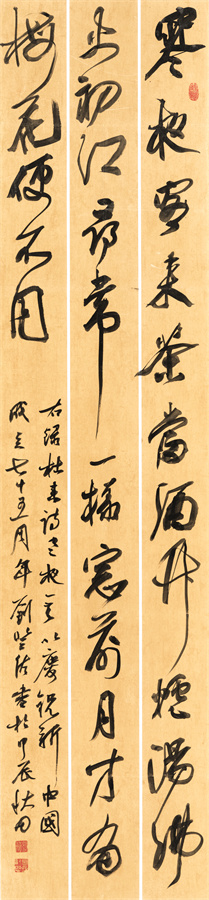 寒夜客来茶當酒竹爐湯沸
火初红尋常一樣窗前月才有
梅花便不同
右录杜耒诗寒夜一首以慶祝新中國
成立七十五周年劉書於甲辰秋月